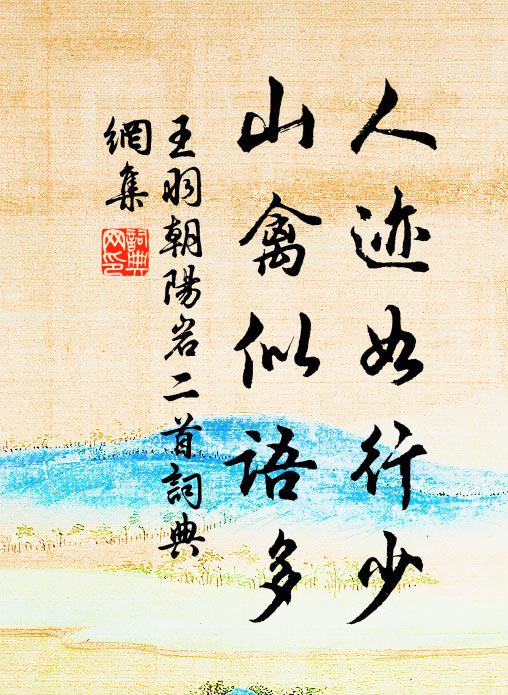 人迹如行少
山禽似语多
王羽朝陽岩二首詞典
網集
詞典
网印